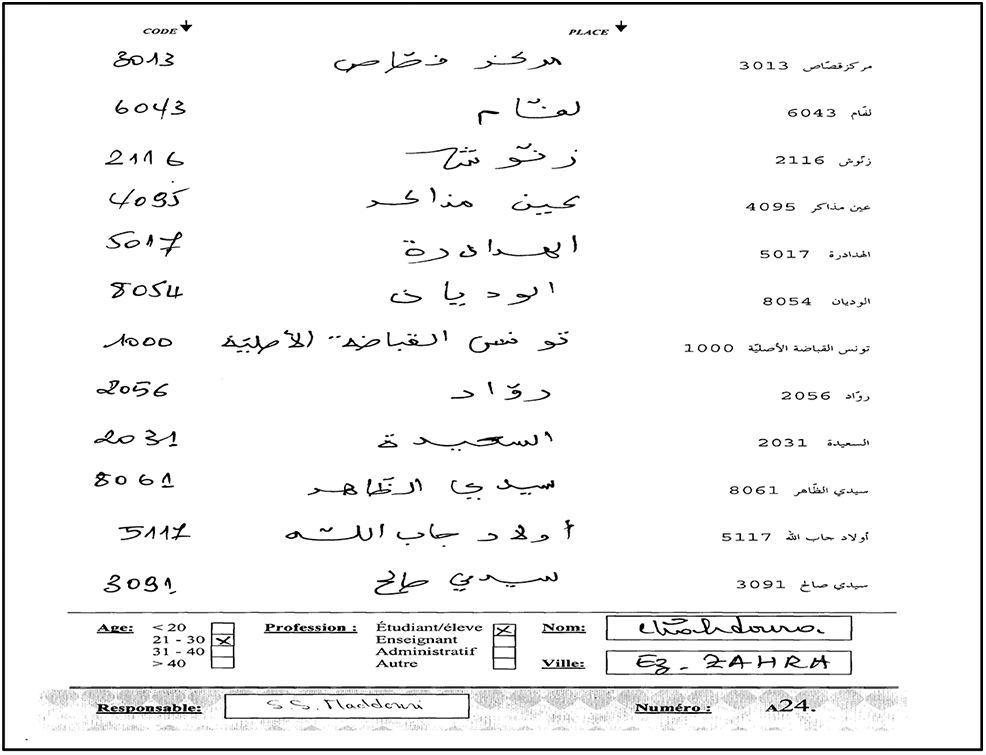 CODE PLACE
3013 مركز قصّاص مركز قصّاص 3013
6043 لقّام لقّام 6043
2116 زنّوش زنّوش 2116
4095 عين مذاكر عين مذاكر 4095
5017 الهدادرة الهدادرة 5017
8054 الوديان الوديان 8054
1000 تونس القباضة الأصليّة تونس القباضة الأصليّة 1000
2056 روّاد روّاد 2056
2031 السعيدة السعيدة 2031
8061 سيدي الظّاهر سيدي الظّاهر 8061
5117 أولاد جاب اللّه أولاد جاب الله 5117
3091 سيدي صالح سيدي صالح 3091
Age: < 20 Profession : Étudiant/éleve Nom:
21 - 30 Enseignant
31 - 40 Administratif Ville: Ez-ZAHRA
> 40 Autre
Responsable: S S. Maddouri Numéro : A24.